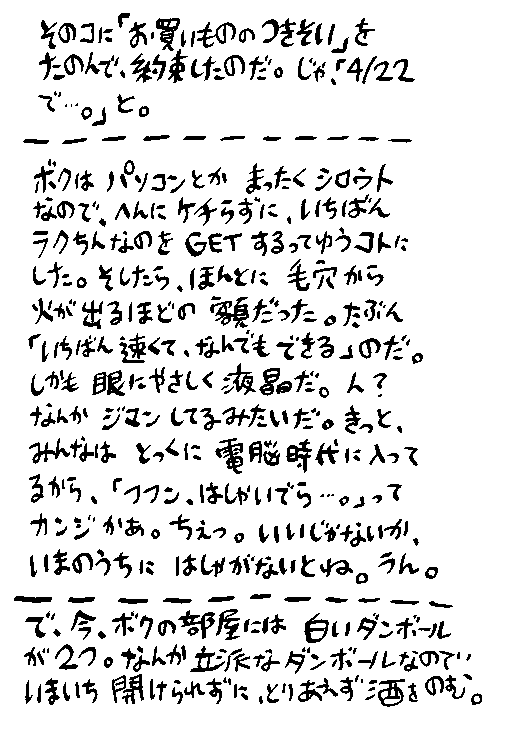 そのコに「お買いもののつきそい」を
たのんで、約束したのだ。じゃ、「4/22
で…。」と。
ボクは パソコンとか まったく シロウト
なので、へんに ケチらずに、いちばん
ラクちんなのを GET するってゆうコトに
した。そしたら、ほんとに 毛穴から
火が出るほどの 額だった。たぶん
「いちばん速くて、なんでもできる」のだ。
しかも 眼にやさしく 液晶だ。ん?
なんか ジマンしてるみたいだ。きっと、
みんなは とっくに 電脳時代に入って
るから、「フフン、はしゃいでら…。」って
カンジかあ。ちぇっ。いいじゃないか、
いまのうちに はしゃがないとね。うん。
で、今、ボクの部屋には 白いダンボール
が2つ。なんか立派なダンボールなので、
いまいち 開けられずに、とりあえず酒をのむ。